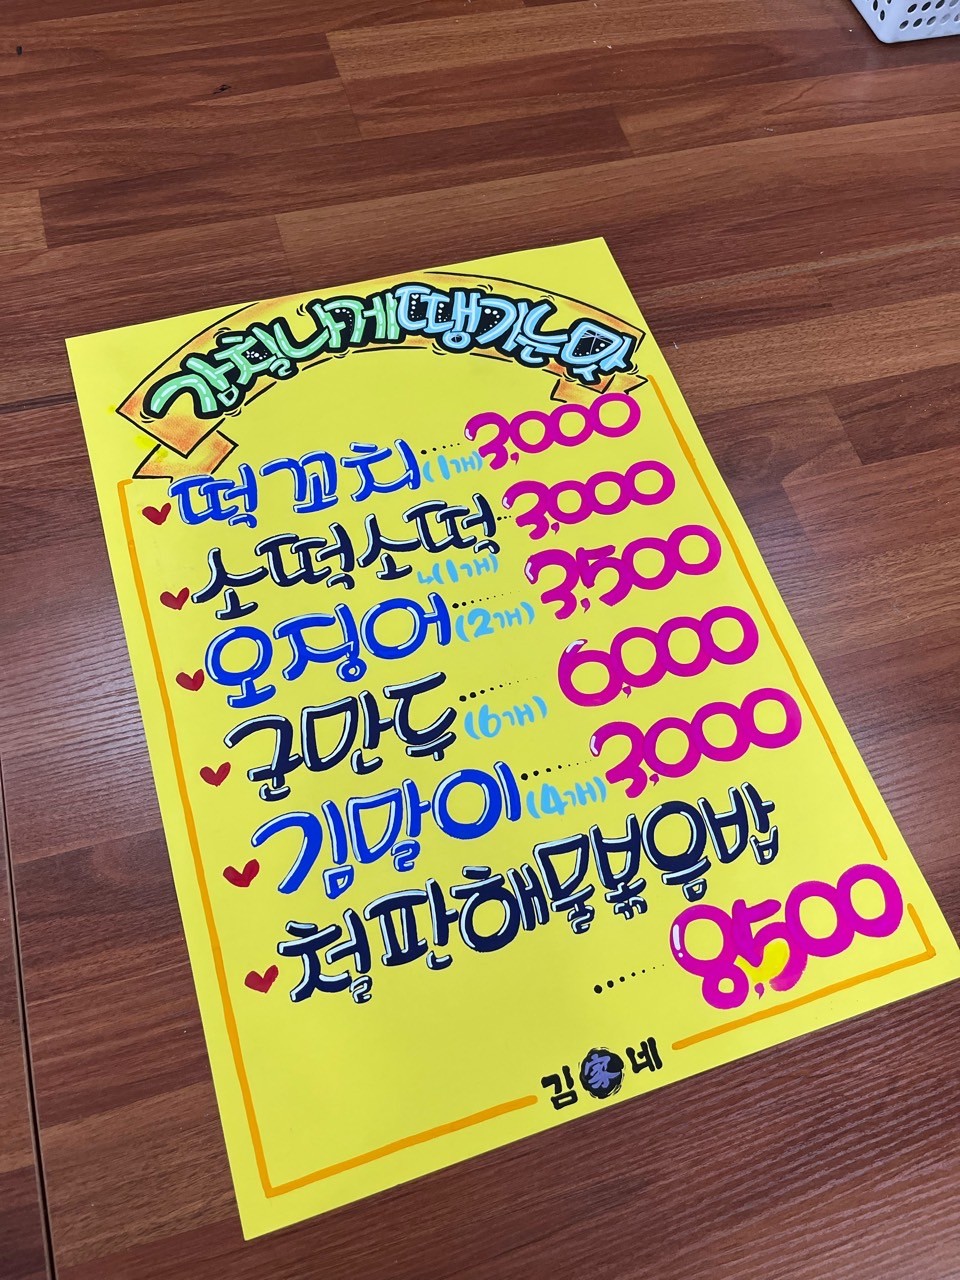 감칠나게땡기는맛
떡꼬치(1개)……3,000
소떡소떡(1개)…3,000
오징어(2개)……3,500
군만두(6개)……6,000
김말이(4개)……3,000
철판해물볶음밥
……8,500
김家네